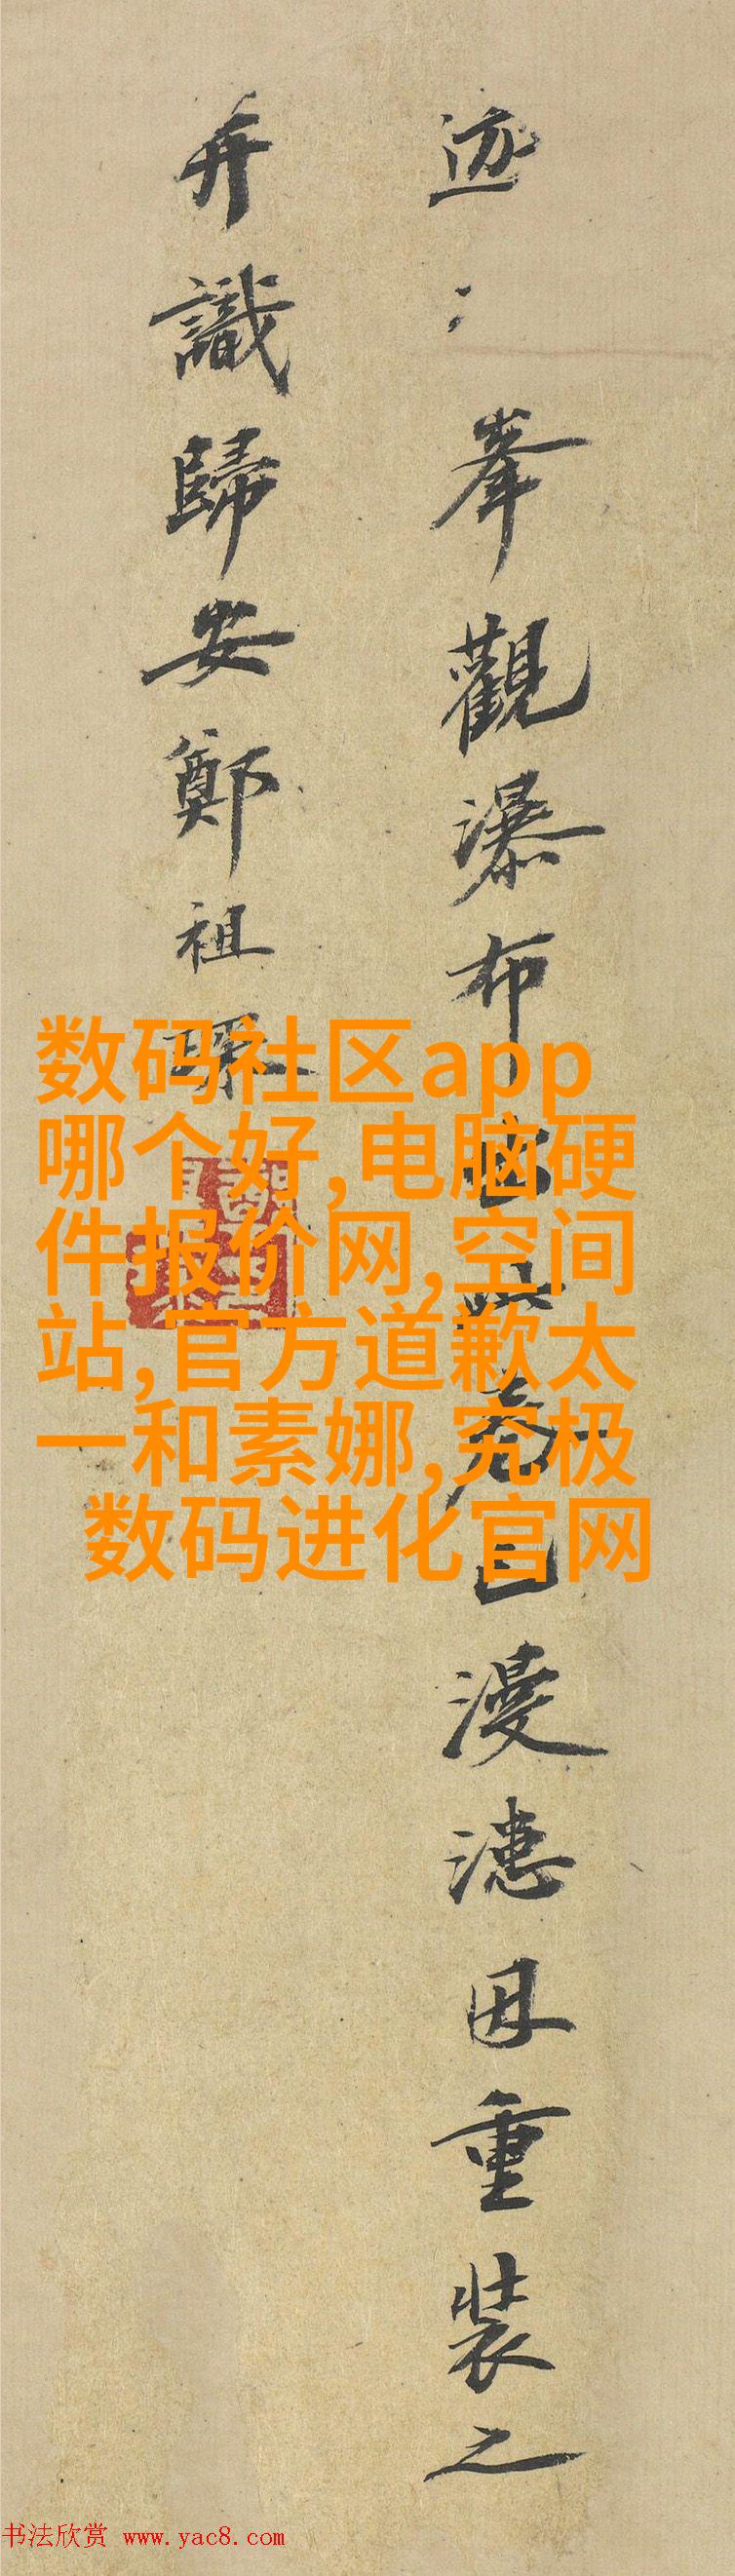 迹〻峯觀瀑布
已漫漶因重装之
弁識歸安鄭祖琛
数码社区app
哪个好,电脑硬
件报价网,空间
站,官方道歉太
一和素娜,究极
数码进化官网
书法欣赏 www.yac8.com